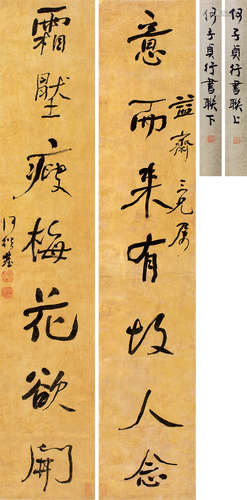 何子貞行書聯上
何子貞行書聯下
意而来有故人念
益齋三兄属
霜壓瘦梅花欲開
何紹基